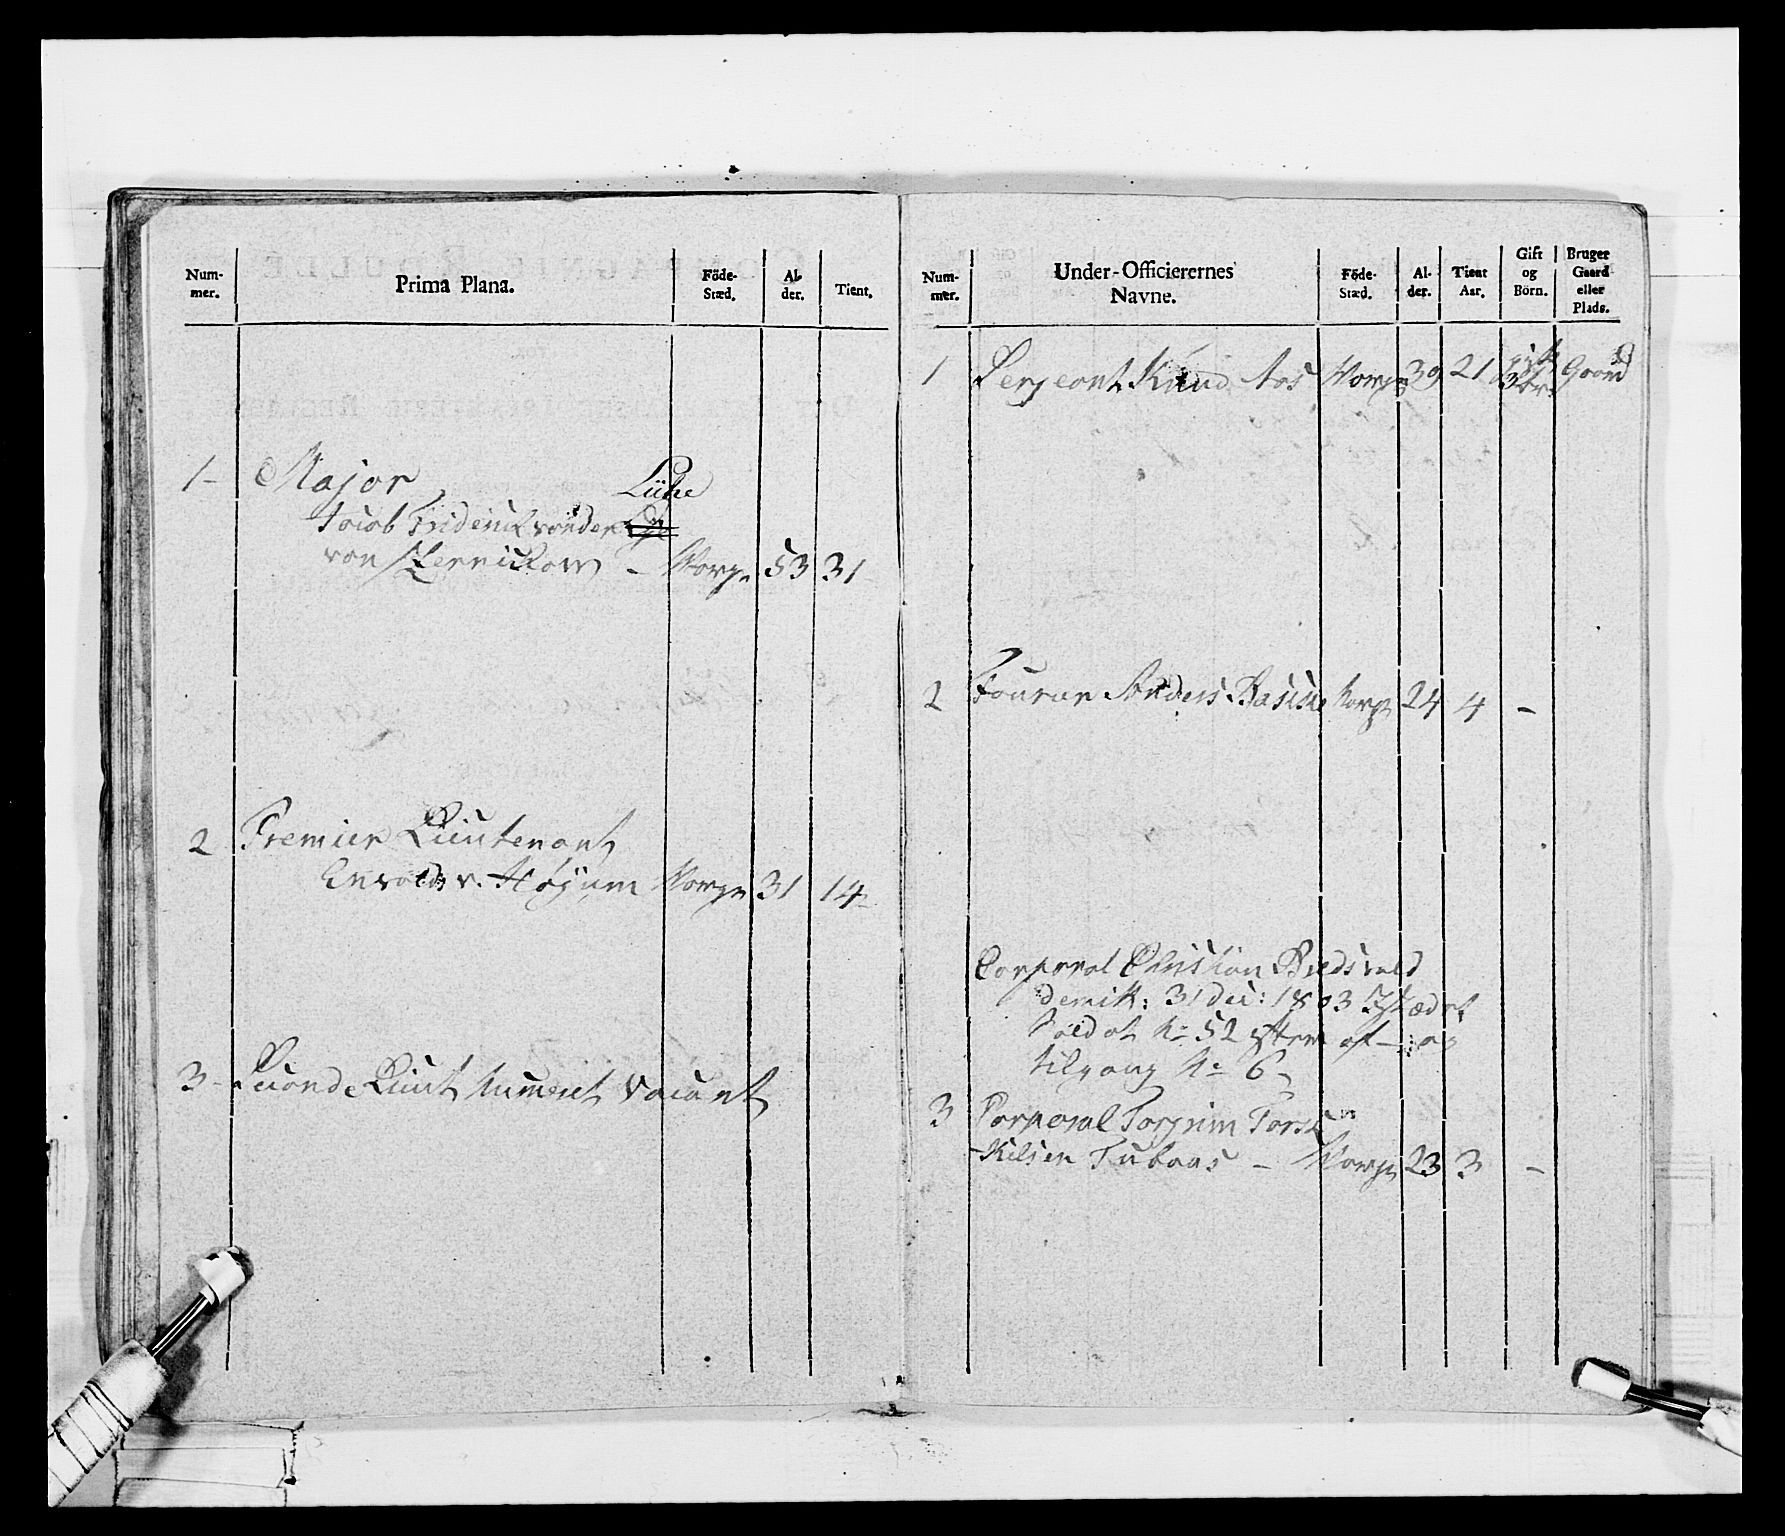 Num-
mer.
Prima Plana.
Föde-
Stæd.
Al-
der.
Tient.
1- Major
Lühe
Jacob Friderick von der
von Zernickow - Norge 53 31
2 Premier Lieutenant
Envold v. Høyum Norge 31 14
3- Second Lieut Numeret vacant
Num-
mer.
Under-Officierernes
Navne.
Föde-
Stæd.
Al-
der.
Tient
Aar.
Gift
og
Börn.
Bruger
Gaard
eller
Plads.
1 Sergeant Knud Aas Norge 39 21 gift 3 br Gaard
2 Fourier Anders Norge 24 4 -
Corporal Christian
demit: 31 Dec: 1803
Soldat No 52 af- og
tilgang No 6
3 Corporal Torgrim Torst
Kilsen - Norge 23 3 -